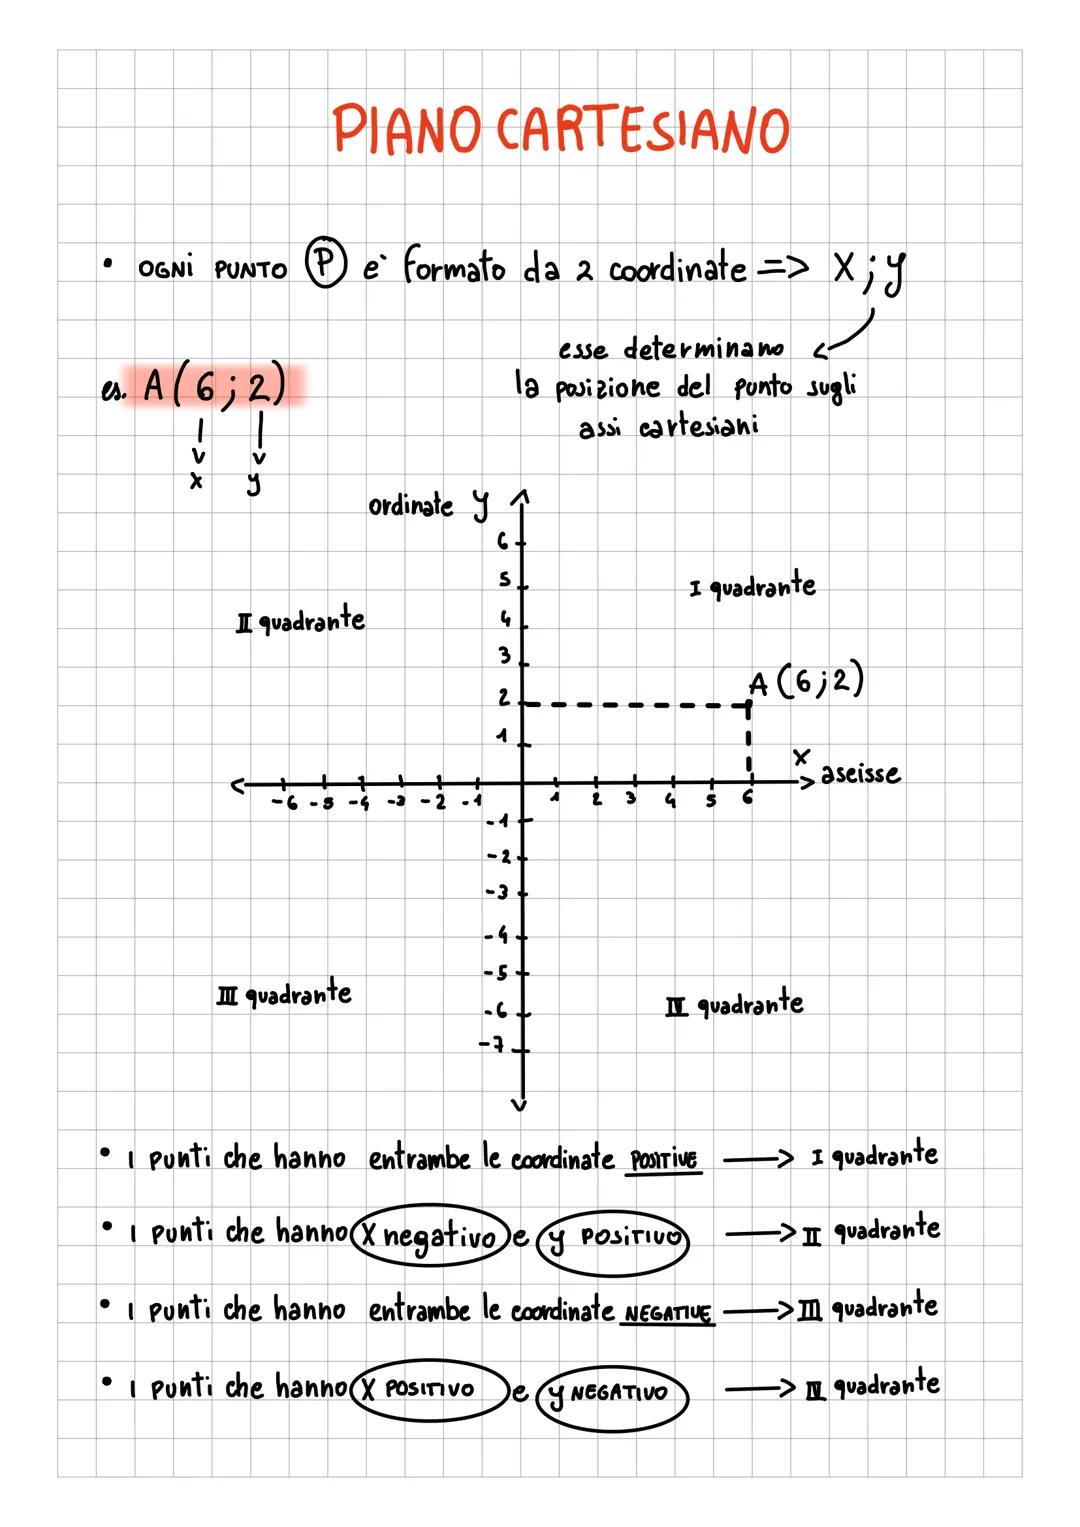 PIANO CARTESIANO
• OGNI PUNTO P e` formato da 2 coordinate => X;y
esse determinano
la posizione del punto sugli
assi cartesiani
es. A(6;2)
x y
ordinate y
6
5
I quadrante
II quadrante
4
3
A(6;2)
2
1
x
aseisse
-6 -5 -4 -3 -2 -1 1 2 3 4 5 6
-1
-2
-3
-4
-5
III quadrante
-6
IV quadrante
-7
• I punti che hanno entrambe le coordinate POSITIVE —> I quadrante
• I punti che hanno X negativo e y POSITIVO —> II quadrante
• I punti che hanno entrambe le coordinate NEGATIVE —> III quadrante
• I punti che hanno X POSITIVO e y NEGATIVO —> IV quadrante